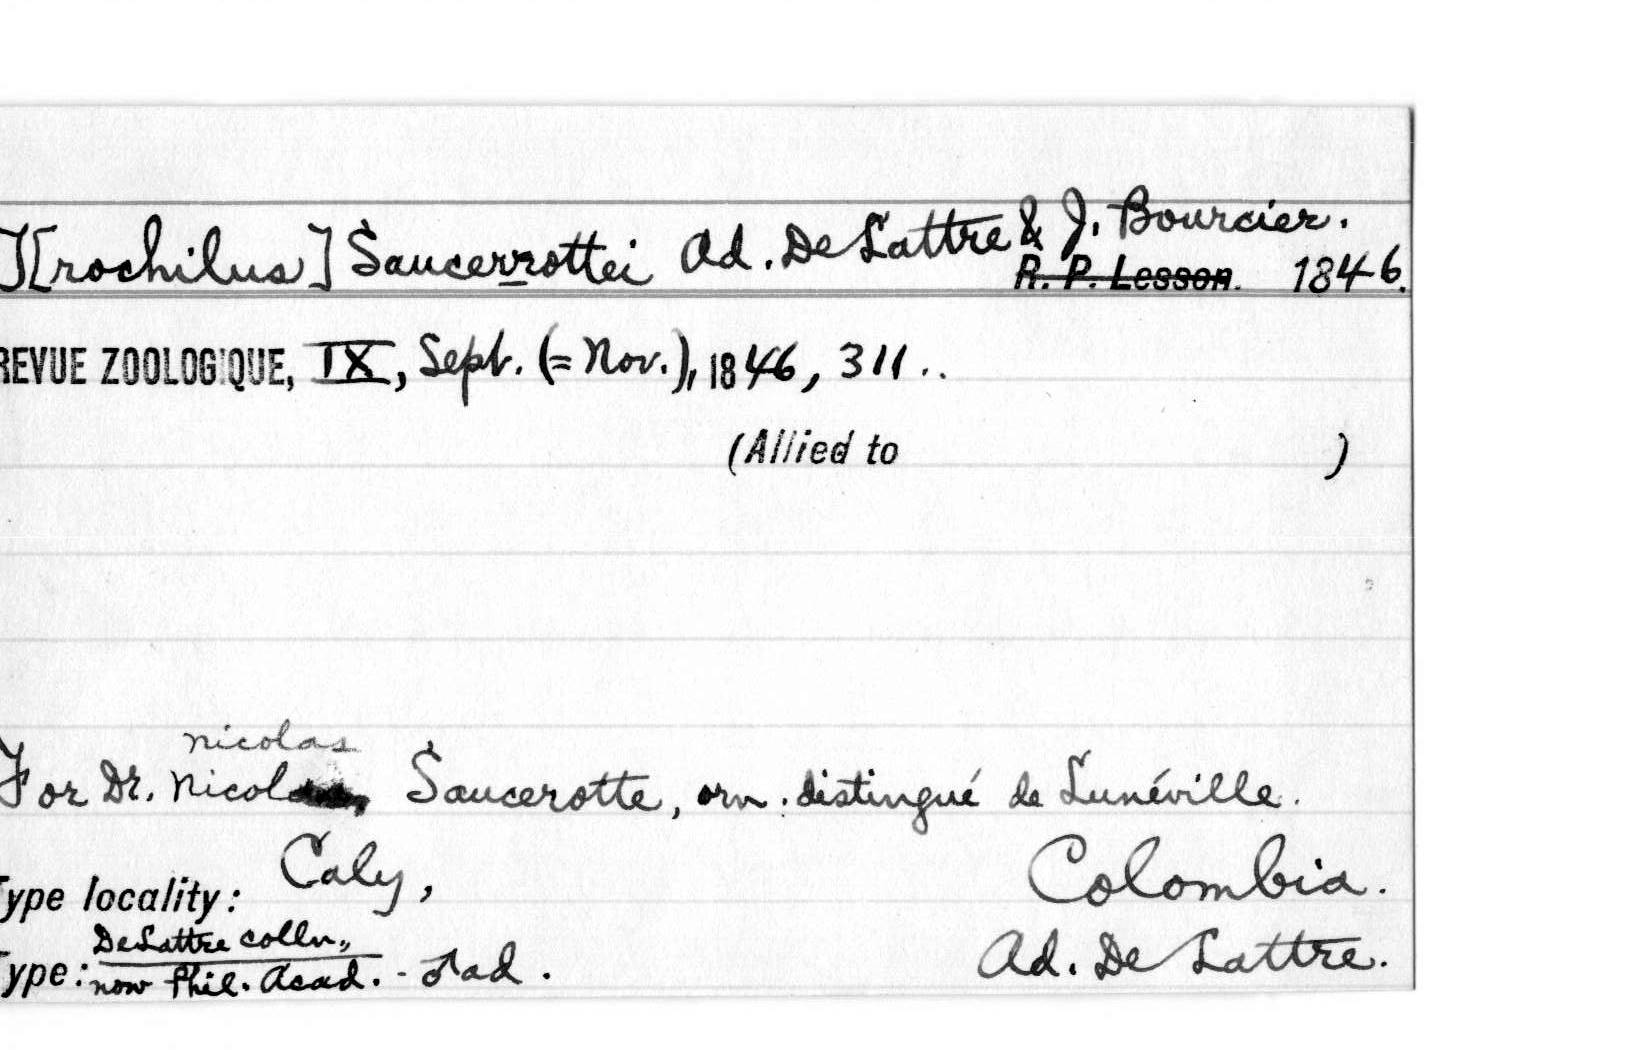 T[rochilus] Saucerrottei Ad. DeLattre & J. Bourcier.
R. P. Lesson. 1846.
REVUE ZOOLOGIQUE, IX, Sept. (= Nov.), 1846, 311..
(Allied to )
nicolas
For Dr. Nicolas Saucerotte, orn. distingué de Lunéville.
Type locality: Caly, Colombia.
DeLattre colln.,
Type: now Phil. Acad. - ♂ ad. Ad. De Lattre.